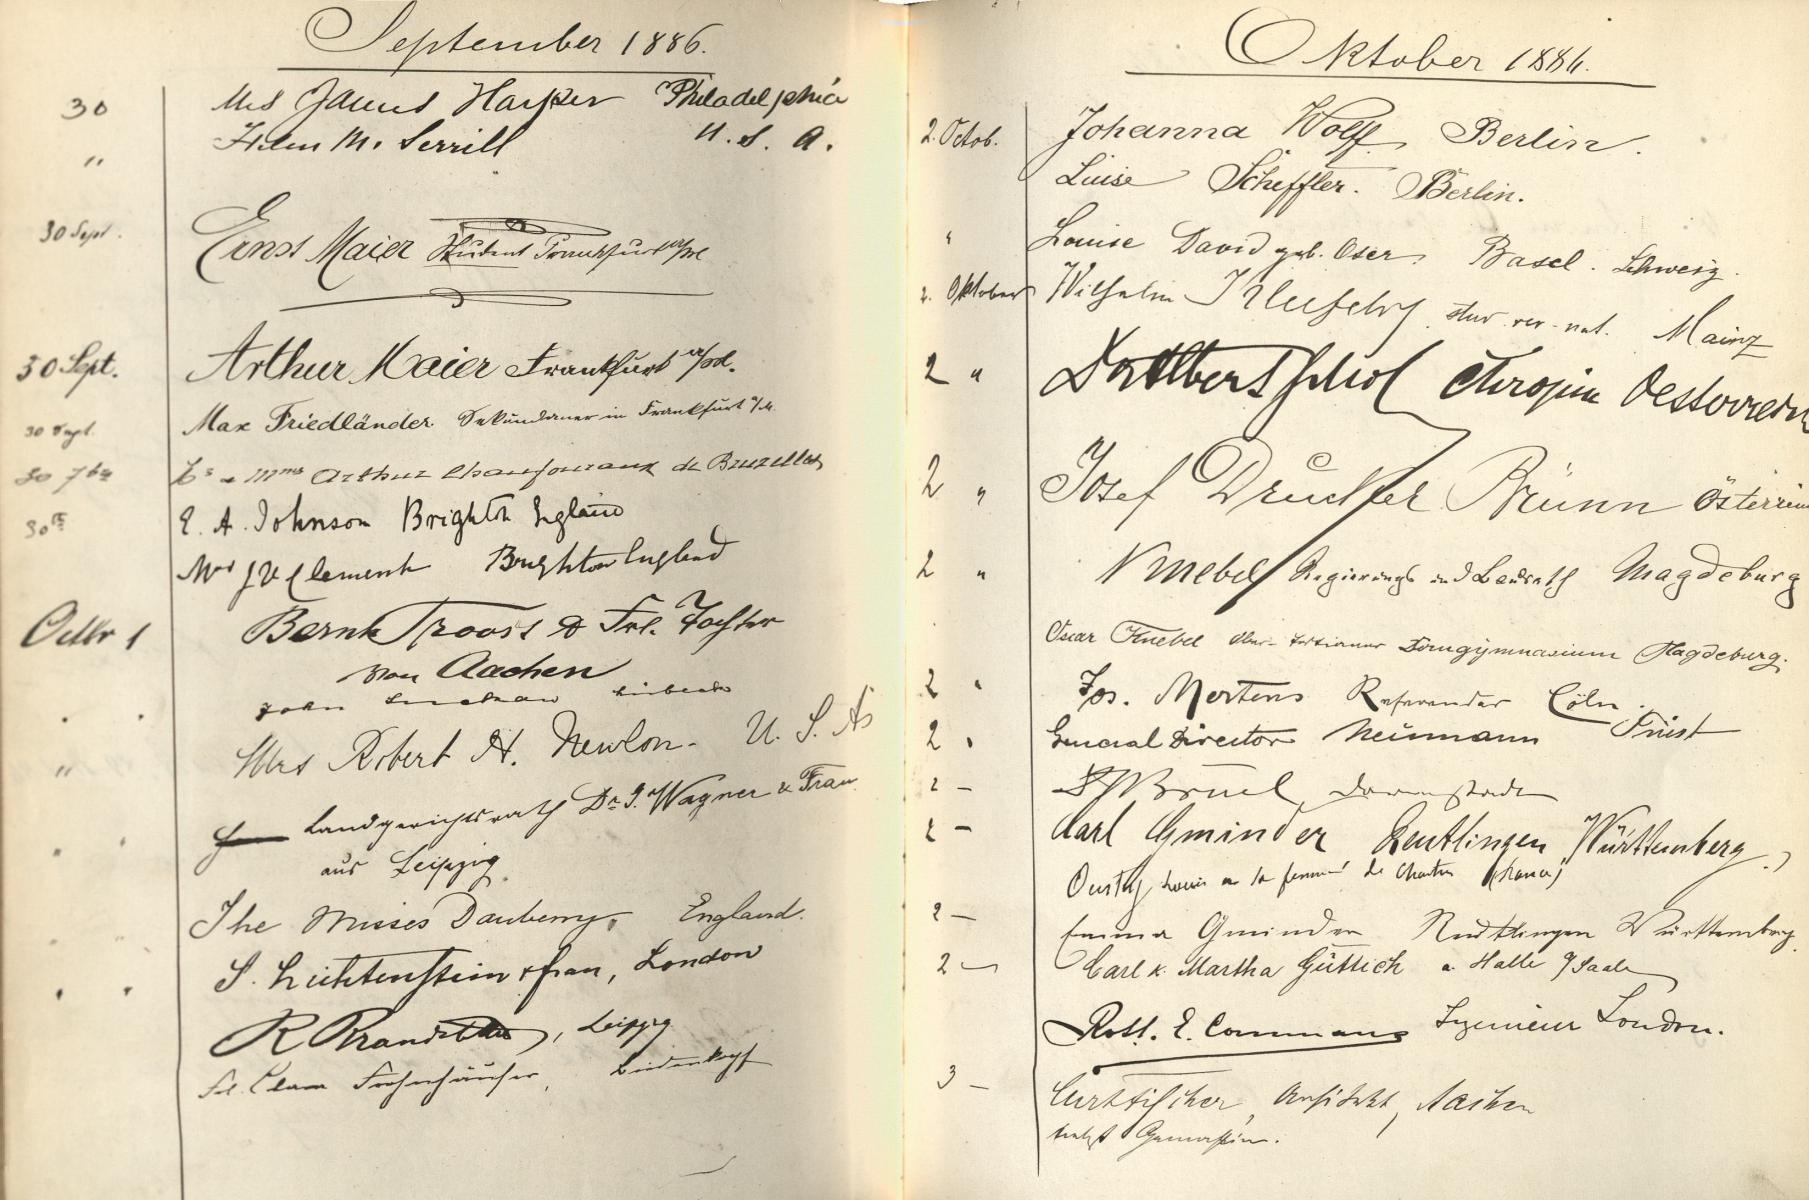 September 1886.
30 Mrs James Harper Philadelphia
" Helen M. Serrill U. S. A.
30 Sept. Ernst Maier Student Frankfurt a/M
30 Sept. Arthur Maier Frankfurt a/M.
30 Sept. Max Friedländer Sekundaner in Frankfurt a/M.
30 7bre Mme Arthur de Bruxelles
30th E. A. Johnson Brighton England
Mrs Clement Brighton England
Octbr 1 Bernh Troost & Frl. Tochter
von Aachen
John
" Mrs Robert H. Newlon. U. S. As
Landgerichtsrath Dr. J. Wagner & Frau
aus Leipzig.
The Misses Daubeny, England.
S. Lichtenstein & frau, London
R Brandstetter, Leipzig
Frl. Clara Frohnhäuser, Biedenkopf
Oktober 1886.
2. Octob. Johanna Wolff, Berlin.
Luise Scheffler. Berlin.
" Louise David geb. Oser. Basel. Schweiz.
2. Oktober Wilhelm stud. rer. nat. Mainz
2 " Oesterreich
2 " Josef Drucker Brünn Österreich
2 " Knebel Regierungs und Landrath Magdeburg
Oscar Knebel Ober-tertianer Domgymnasium Magdeburg.
2 " Jos. Mertens Referendar Cöln.
2 " General Director Neumann Triest
2 – Brüel, Darmstadt
2 – Carl Gminder Reutlingen Württemberg.
Louis de Chartres (France)
2 – Emma Gminder Reutlingen Württemberg.
2 – Carl & Martha Güttich a. Halle a/Saale
Robt. E. Commans Ingenieur London.
3 – Curt Fischer, Architekt, Aachen